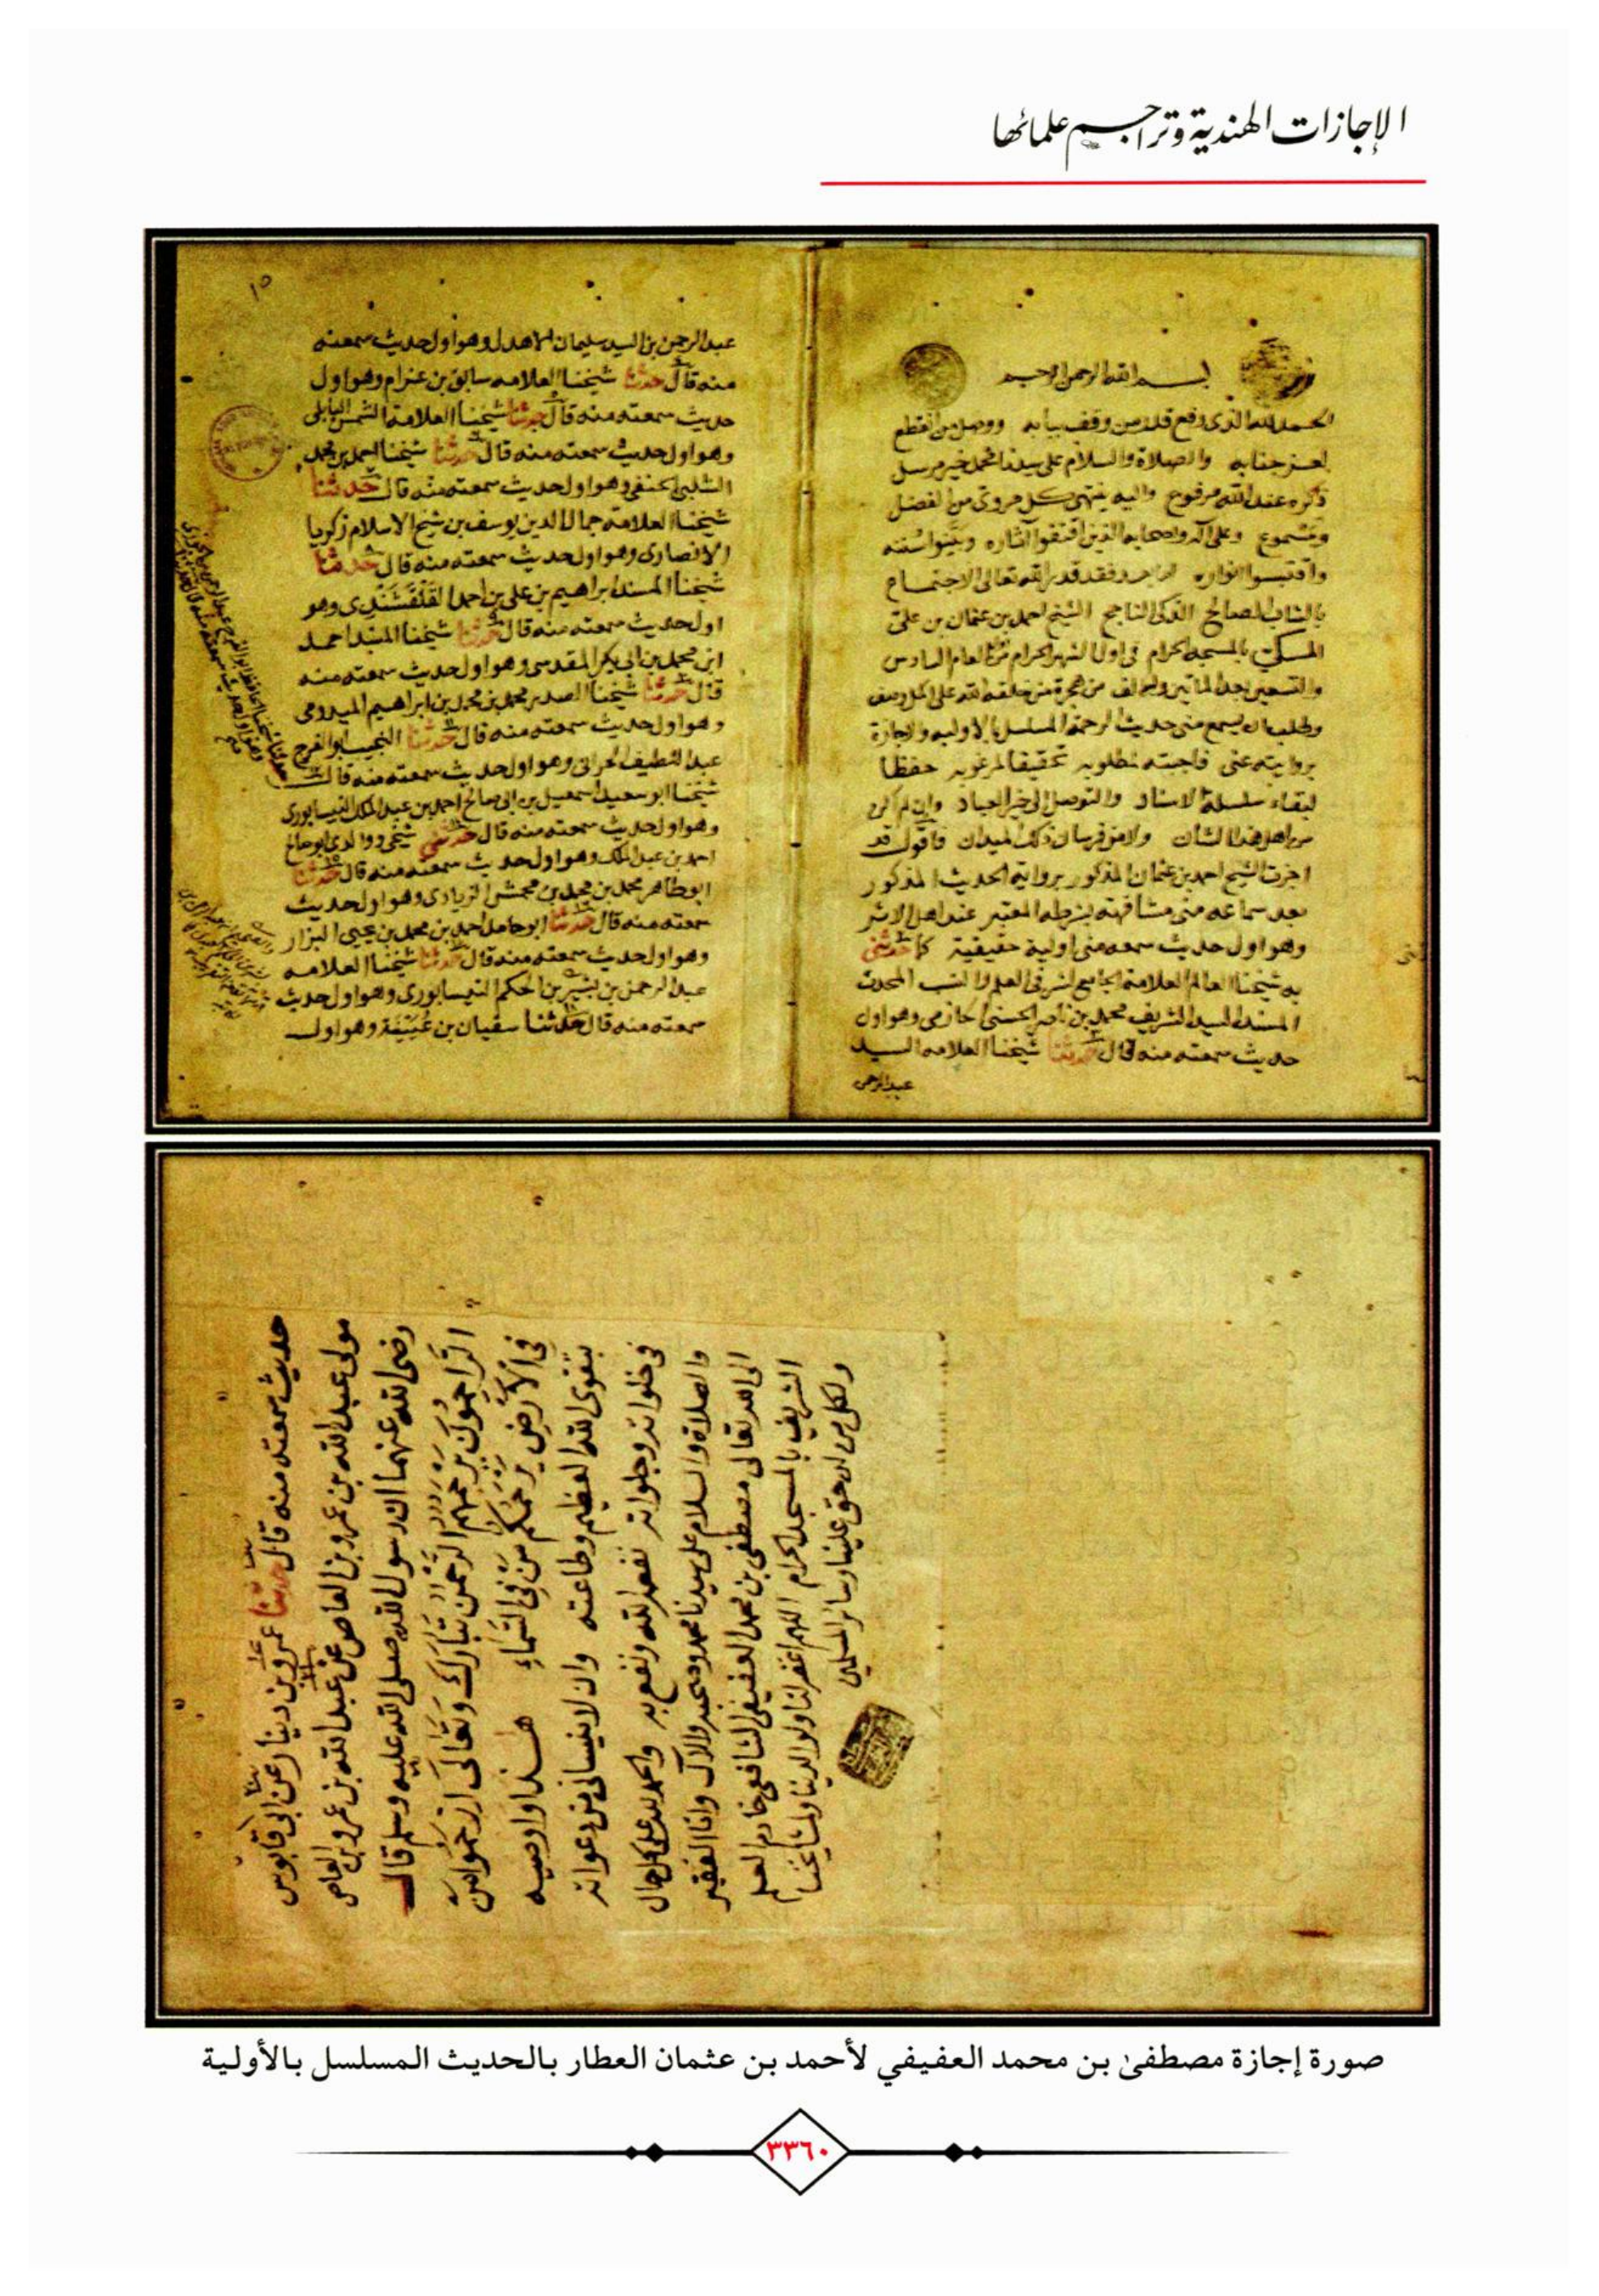 الإجازات الهندية وتراجم علمائها
بسم الله الرحمن الرحيم
الحمد لله الذي رفع قدر من وقف ببابه ووصل من انقطع
لعز جنابه والصلاة والسلام على سيدنا محمد خير مرسل
ذكره عند الله مرفوع واليه ينتهي كل مروي من الفضل
ومسموع وعلى آله واصحابه الذين اقتفوا آثاره وبينوا سنته
واقتبسوا انواره اما بعد فقد قدر الله تعالى الاجتماع
بالشاب الصالح الذكي الناجح الشيخ احمد بن عثمان بن علي
المكي بالمسجد الحرام في اول الشهر الحرام من العام السادس
والتسعين بعد الماتين والالف من هجرة من خلقه الله على اكمل وصف
وطلب ان يسمع مني حديث الرحمة المسلسل بالاوليه والاجازة
بروايته عني فاجبته لمطلوبه تحقيقا لمرغوبه حفظا
لبقاء سلسلة الاسناد والتوصل الى خير العباد وان لم اكن
من اهل هذا الشان ولا من فرسان ذلك الميدان فاقول قد
اجزت الشيخ احمد بن عثمان المذكور برواية الحديث المذكور
بعد سماعه مني مشافهة بشرطه المعتبر عند اهل الاثر
وهو اول حديث سمعه مني اولية حقيقية كما حدثني
به شيخنا العالم العلامة الجامع لشرفي العلم والنسب المحدث
المسند السيد الشريف محمد بن ناصر الحسني الحازمي وهو اول
حديث سمعته منه قال حدثنا شيخنا العلامه السيد
عبد الرحمن
١٥
عبد الرحمن بن السيد سليمان الاهدل وهو اول حديث سمعته
منه قال حدثنا شيخنا العلامه سابق بن عزام وهو اول
حديث سمعته منه قال حدثنا شيخنا العلامة الشمس البابلي
وهو اول حديث سمعته منه قال حدثنا شيخنا بن محمد
الشلبي الحنفي وهو اول حديث سمعته منه قال حدثنا
شيخنا العلامة جمال الدين يوسف بن شيخ الاسلام زكريا
الانصاري وهو اول حديث سمعته منه قال حدثنا
شيخنا المسند ابراهيم بن علي بن احمد القلقشندي وهو
اول حديث سمعته منه قال حدثنا شيخنا المسند احمد
ابن محمد بن ابي بكر المقدسي وهو اول حديث سمعته منه
قال حدثنا شيخنا الصدر محمد بن محمد بن ابراهيم الميدومي
وهو اول حديث سمعته منه قال حدثنا النجيب ابو الفرج
عبد اللطيف الحراني وهو اول حديث سمعته منه قال
شيخنا ابو سعيد اسمعيل بن ابي صالح احمد بن عبد الملك النيسابوري
وهو اول حديث سمعته منه قال حدثني شيخي ووالدي ابو صالح
احمد بن عبد الملك وهو اول حديث سمعته منه قال حدثنا
ابو طاهر محمد بن محمد بن محمش الزيادي وهو اول حديث
سمعته منه قال حدثنا ابو حامد احمد بن محمد بن يحيى البزار
وهو اول حديث سمعته منه قال حدثنا شيخنا العلامه
عبد الرحمن بن بشر بن الحكم النيسابوري وهو اول حديث
سمعته منه قال حدثنا سفيان بن عيينة وهو اول
حديث سمعته منه قال حدثنا عمرو بن دينار عن ابي قابوس
مولى عبد الله بن عمرو بن العاص عن عبد الله بن عمرو بن العاص
رضي الله عنهما ان رسول الله صلى الله عليه وسلم قال
الرَّاحمُونَ يرحمهم الرحمن تبارك وتعالى ارحموا من
في الأرض يرحمكم من في السماء هذا واوصيه
بتقوى الله العظيم وطاعته وان لا ينساني من دعواته
في خلواته وجلواته نفعه الله ونفع به والحمد لله على كل حال
والصلاة والسلام على سيدنا محمد وصحبه والال وانا الفقير
الى الله تعالى مصطفى بن محمد العفيفي الشافعي خادم العلم
الشريف بالمسجد الحرام اللهم اغفر لنا ولوالدينا ولمشايخنا
ولكل من له حق علينا وسائر المسلمين
صورة إجازة مصطفىٰ بن محمد العفيفي لأحمد بن عثمان العطار بالحديث المسلسل بالأولية
٣٣٦٠